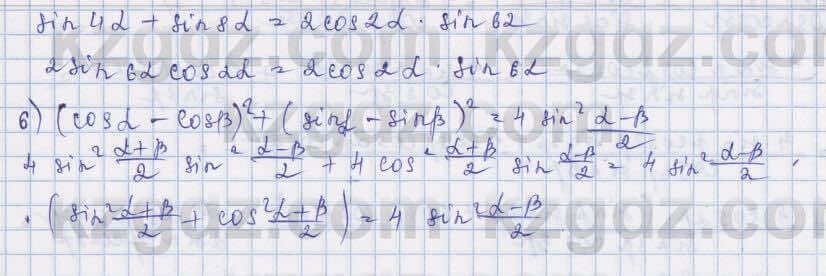 sin 4α + sin 8α = 2cos2α · sin 6α
2sin 6α cos 2α = 2cos2α · sin 6α
б) (cosα - cosβ)² + (sinα - sinβ)² = 4 sin² (α-β)/2
4 sin² (α+β)/2 sin² (α-β)/2 + 4 cos² (α+β)/2 sin (α-β)/2 = 4 sin² (α-β)/2 ·
· (sin² (α+β)/2 + cos² (α+β)/2) = 4 sin² (α-β)/2